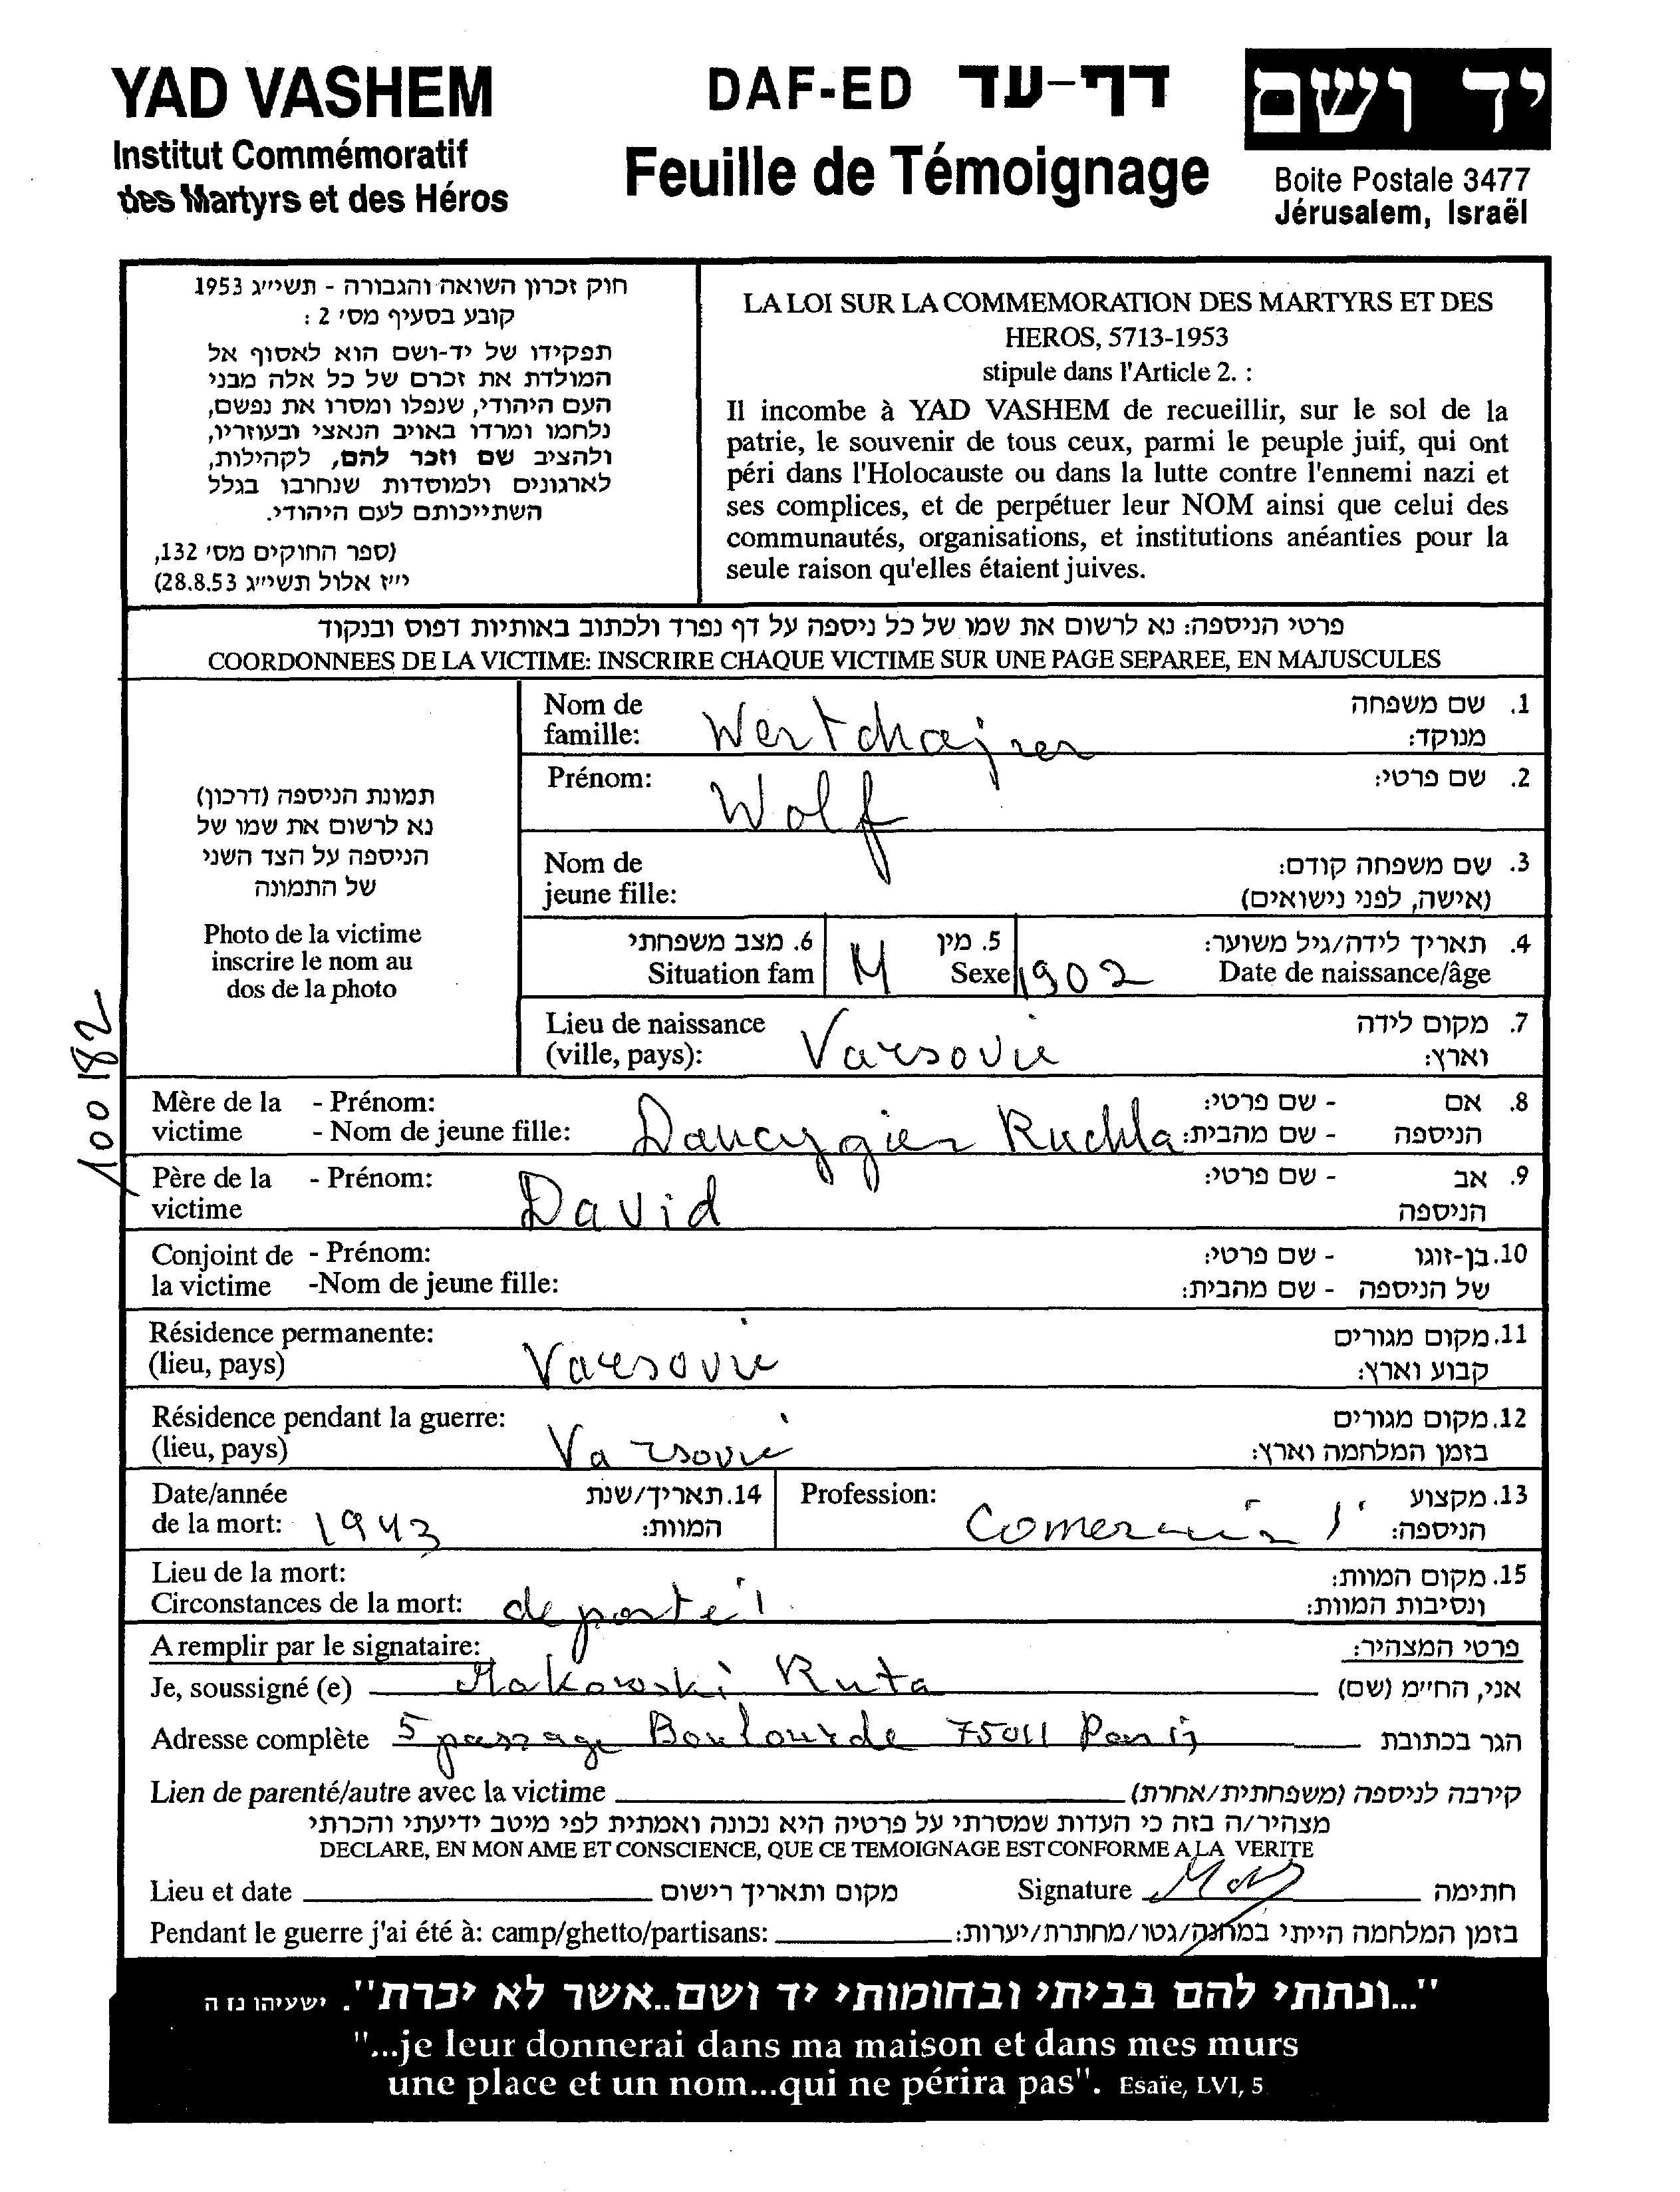 YAD VASHEM
Institut Commémoratif
des Martyrs et des Héros
DAF-ED דף-עד
Feuille de Témoignage
יד ושם
Boite Postale 3477
Jérusalem, Israël
חוק זכרון השואה והגבורה - תשי״ג 1953
קובע בסעיף מס׳ 2 :
תפקידו של יד-ושם הוא לאסוף אל
המולדת את זכרם של כל אלה מבני
העם היהודי, שנפלו ומסרו את נפשם,
נלחמו ומרדו באויב הנאצי ובעוזריו,
ולהציב שם וזכר להם, לקהילות,
לארגונים ולמוסדות שנחרבו בגלל
השתייכותם לעם היהודי.
(ספר החוקים מס׳ 132,
י״ז אלול תשי״ג 28.8.53)
LA LOI SUR LA COMMEMORATION DES MARTYRS ET DES
HEROS, 5713-1953
stipule dans l'Article 2. :
Il incombe à YAD VASHEM de recueillir, sur le sol de la
patrie, le souvenir de tous ceux, parmi le peuple juif, qui ont
péri dans l'Holocauste ou dans la lutte contre l'ennemi nazi et
ses complices, et de perpétuer leur NOM ainsi que celui des
communautés, organisations, et institutions anéanties pour la
seule raison qu'elles étaient juives.
פרטי הניספה: נא לרשום את שמו של כל ניספה על דף נפרד ולכתוב באותיות דפוס ובנקוד
COORDONNEES DE LA VICTIME: INSCRIRE CHAQUE VICTIME SUR UNE PAGE SEPAREE, EN MAJUSCULES
תמונת הניספה (דרכון)
נא לרשום את שמו של
הניספה על הצד השני
של התמונה
Photo de la victime
inscrire le nom au
dos de la photo
100182
Nom de famille: Wertchajzer 1. שם משפחה
מנוקד:
Prénom: Wolf 2. שם פרטי:
Nom de 3. שם משפחה קודם:
jeune fille: (אישה, לפני נישואים)
6. מצב משפחתי 5. מין 4. תאריך לידה/גיל משוער:
Situation fam M Sexe 1902 Date de naissance/âge
Lieu de naissance 7. מקום לידה
(ville, pays): Varsovie וארץ:
Mère de la - Prénom: - שם פרטי: 8. אם
victime - Nom de jeune fille: Dancygier Ruchla - שם מהבית: הניספה
Père de la - Prénom: - שם פרטי: 9. אב
victime David הניספה
Conjoint de - Prénom: - שם פרטי: 10. בן-זוגו
la victime -Nom de jeune fille: - שם מהבית: של הניספה
Résidence permanente: 11. מקום מגורים
(lieu, pays) Varsovie קבוע וארץ:
Résidence pendant la guerre: 12. מקום מגורים
(lieu, pays) Varsovie בזמן המלחמה וארץ:
Date/année 14. תאריך/שנת Profession: 13. מקצוע
de la mort: 1943 המוות: הניספה:
Lieu de la mort: 15. מקום המוות:
Circonstances de la mort: deporté ונסיבות המוות:
A remplir par le signataire: פרטי המצהיר:
Je, soussigné (e) Makowski Ruta אני, החי״מ (שם)
Adresse complète 5 passage Boulourde 75011 Paris הגר בכתובת
Lien de parenté/autre avec la victime קירבה לניספה (משפחתית/אחרת)
מצהיר/ה בזה כי העדות שמסרתי על פרטיה היא נכונה ואמתית לפי מיטב ידיעתי והכרתי
DECLARE, EN MON AME ET CONSCIENCE, QUE CE TEMOIGNAGE EST CONFORME A LA VERITE
Lieu et date מקום ותאריך רישום Signature חתימה
Pendant le guerre j'ai été à: camp/ghetto/partisans: בזמן המלחמה הייתי במחנה/גטו/מחתרת/יערות:
"...ונתתי להם בביתי ובחומותי יד ושם..אשר לא יכרת". ישעיהו נז ה
"...je leur donnerai dans ma maison et dans mes murs
une place et un nom...qui ne périra pas". Esaïe, LVI, 5